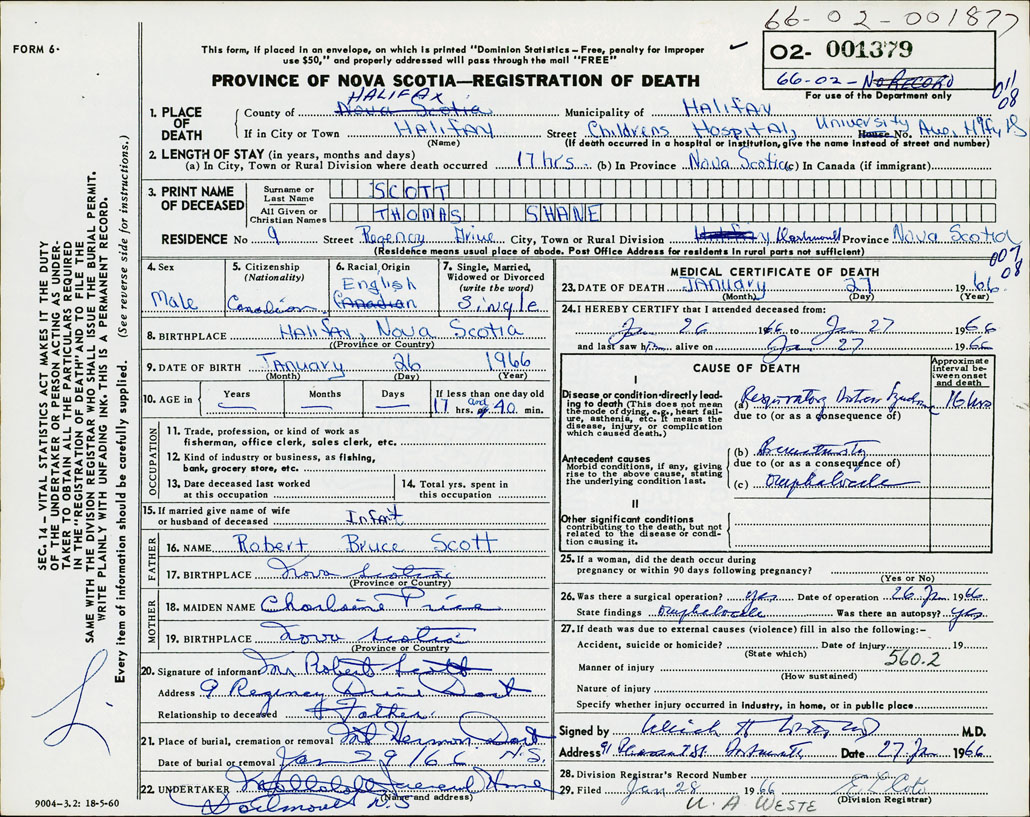 66-02-001877
FORM 6-
This form, if placed in an envelope, on which is printed "Dominion Statistics - Free, penalty for improper
use $50," and properly addressed will pass through the mail "FREE"
02- 001379
66-02- NO RECORD
For use of the Department only
PROVINCE OF NOVA SCOTIA—REGISTRATION OF DEATH
1. PLACE OF DEATH
County of Nova Scotia HALIFAX Municipality of HALIFAX
If in City or Town HALIFAX Street Childrens Hospital, University House No. Ave, Hfx NS
(Name) (If death occurred in a hospital or institution, give the name instead of street and number)
2. LENGTH OF STAY (in years, months and days)
(a) In City, Town or Rural Division where death occurred 17 hrs. (b) In Province Nova Scotia (c) In Canada (if immigrant)
3. PRINT NAME OF DECEASED
Surname or Last Name SCOTT
All Given or Christian Names THOMAS SHANE
RESIDENCE No 9 Street Regency Drive City, Town or Rural Division Halifax Dartmouth Province Nova Scotia
(Residence means usual place of abode. Post Office Address for residents in rural parts not sufficient)
4. Sex Male
5. Citizenship (Nationality) Canadian
6. Racial Origin English Canadian
7. Single, Married, Widowed or Divorced (write the word) Single
8. BIRTHPLACE HALIFAX, NOVA SCOTIA
(Province or Country)
9. DATE OF BIRTH JANUARY 26 1966
(Month) (Day) (Year)
10. AGE in Years Months Days If less than one day old
17 hrs. or and 40 min.
OCCUPATION
11. Trade, profession, or kind of work as
fisherman, office clerk, sales clerk, etc.
12. Kind of industry or business, as fishing,
bank, grocery store, etc.
13. Date deceased last worked
at this occupation
14. Total yrs. spent in
this occupation
15. If married give name of wife
or husband of deceased Infant
FATHER
16. NAME Robert Bruce Scott
17. BIRTHPLACE Nova Scotia
(Province or Country)
MOTHER
18. MAIDEN NAME Charlaine Price
19. BIRTHPLACE Nova Scotia
(Province or Country)
20. Signature of informant Mr Robert Scott
Address 9 Regency Drive Dart
Relationship to deceased Father
21. Place of burial, cremation or removal Mt Hermon Dart N.S.
Date of burial or removal Jan 29/66
22. UNDERTAKER Funeral Home
(Name and address)
Dartmouth N.S
9004-3.2: 18-5-60
MEDICAL CERTIFICATE OF DEATH
23. DATE OF DEATH JANUARY 27 1966
(Month) (Day) (Year)
24. I HEREBY CERTIFY that I attended deceased from:
Jan 26 1966 to Jan 27 1966
and last saw him alive on Jan 27 1966
CAUSE OF DEATH
Approximate interval between onset and death
I
Disease or condition directly leading to death (This does not mean the mode of dying, e.g., heart failure, asthenia, etc. It means the disease, injury, or complication which caused death.)
(a) Respiratory Distress Syndrome 16 hrs
due to (or as a consequence of)
Antecedent causes
Morbid conditions, if any, giving rise to the above cause, stating the underlying condition last.
(b) Prematurity
due to (or as a consequence of)
(c) Omphalocele
II
Other significant conditions
contributing to the death, but not related to the disease or condition causing it.
25. If a woman, did the death occur during
pregnancy or within 90 days following pregnancy?
(Yes or No)
26. Was there a surgical operation? yes Date of operation 26 Jan 1966
State findings Omphalocele Was there an autopsy? yes
27. If death was due to external causes (violence) fill in also the following:-
Accident, suicide or homicide? Date of injury 19
(State which)
560.2
Manner of injury
(How sustained)
Nature of injury
Specify whether injury occurred in industry, in home, or in public place
Signed by M.D.
Address 91 Pleasant St. Dartmouth Date 27 Jan 1966
28. Division Registrar's Record Number
29. Filed Jan 28 1966
(Division Registrar)
SEC. 14 - VITAL STATISTICS ACT MAKES IT THE DUTY
OF THE UNDERTAKER OR PERSON ACTING AS UNDER-
TAKER TO OBTAIN ALL THE PARTICULARS REQUIRED
IN THE "REGISTRATION OF DEATH" AND TO FILE THE
SAME WITH THE DIVISION REGISTRAR WHO SHALL ISSUE THE BURIAL PERMIT.
WRITE PLAINLY WITH UNFADING INK. THIS IS A PERMANENT RECORD.
Every item of information should be carefully supplied. (See reverse side for instructions.)